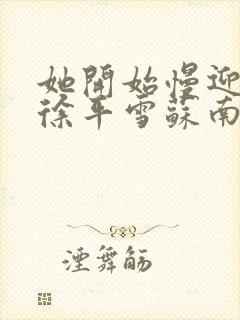 她開始慢迎
徐平雪蘇南
湮舞觞